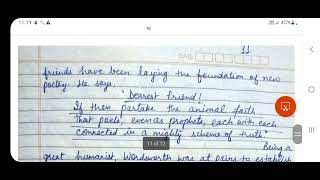 11:19
61%
11
DATE
friends have been laying the foundation of new
poetry. He says,
"Dearest Friend!
If thou partake the animal faith
That poets, even as prophets, each with each
connected in a mighty scheme of truth"
Being a
11 of 12
great humanist, Wordsworth was at pains to establish